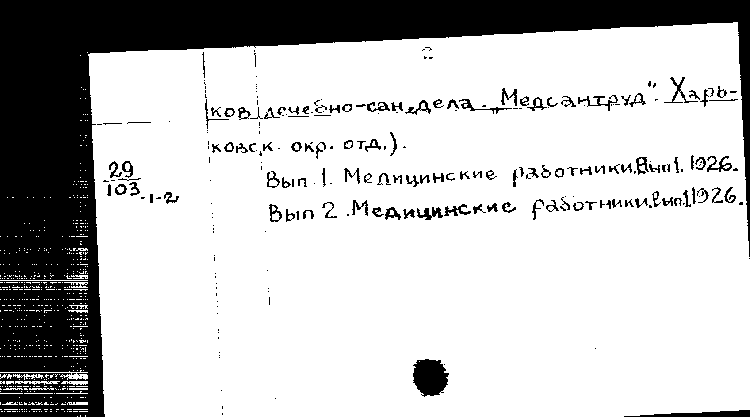 ков лечебно-сан. дела. „Медсантруд". Харь-
ковск. окр. отд.).
29
103 -1-2
Вып. 1. Медицинские работники. Вып 1. 1926.
Вып 2. Медицинские работники. Вып 1 1926.